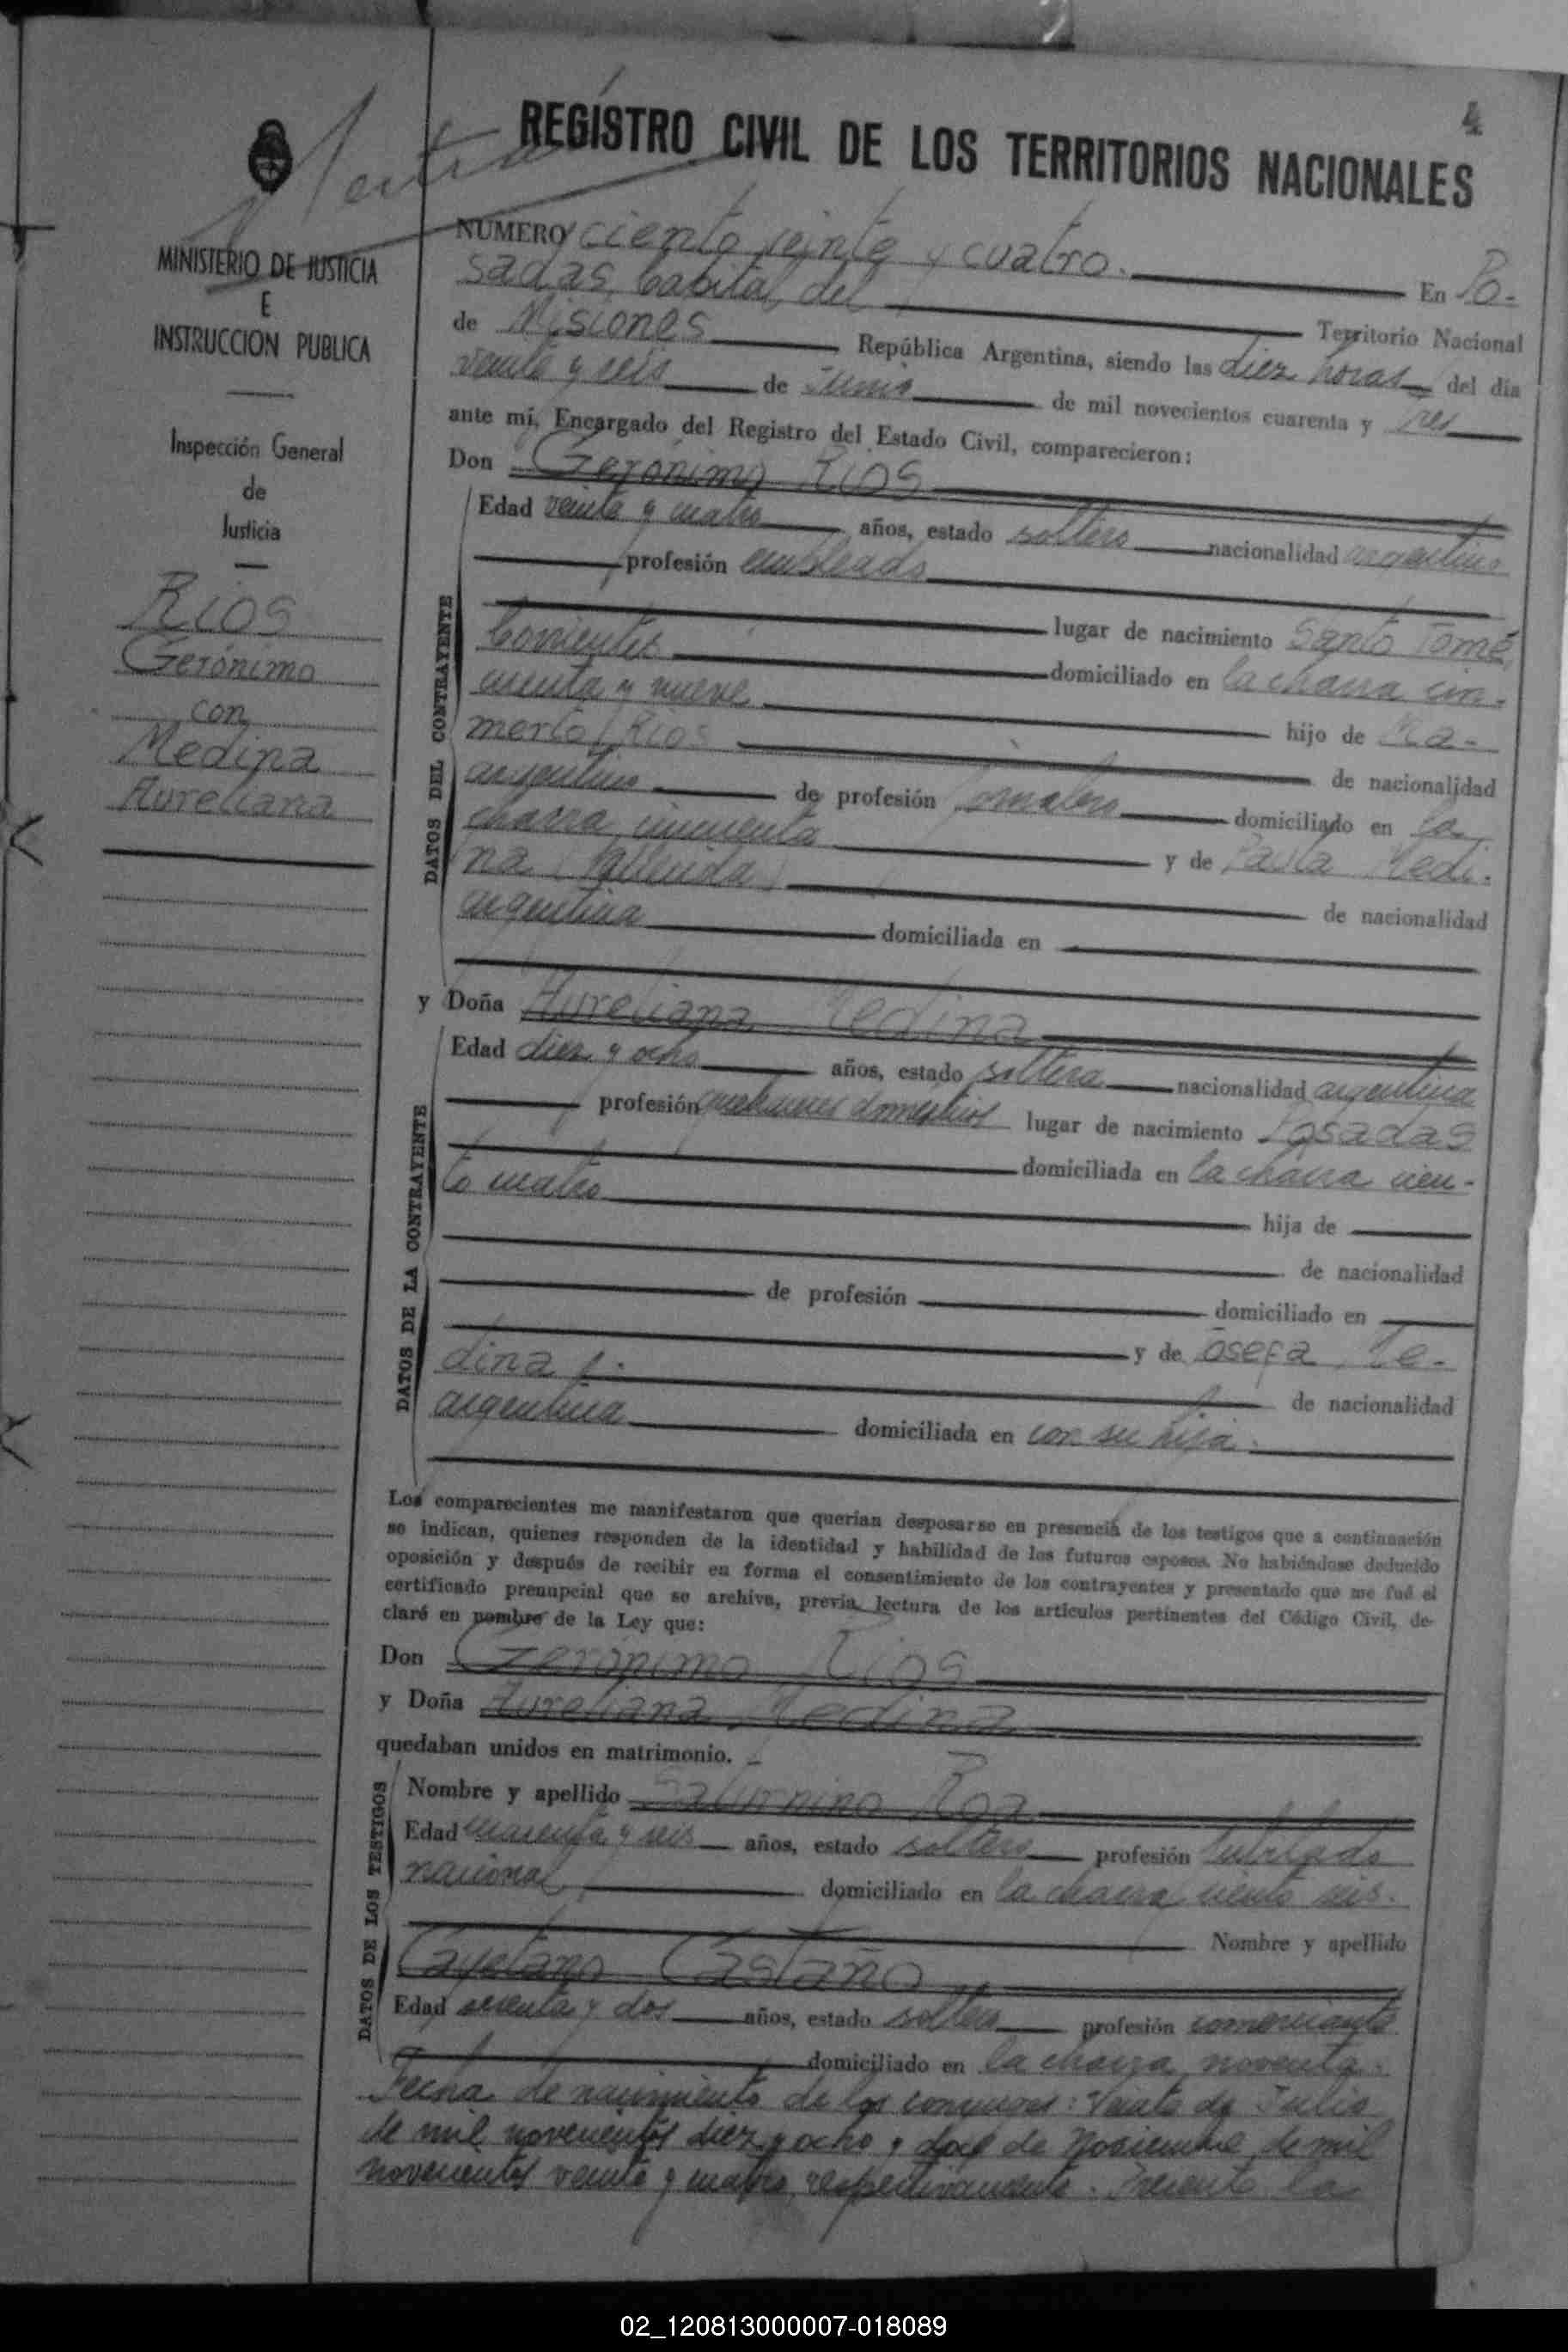 4
REGISTRO CIVIL DE LOS TERRITORIOS NACIONALES
MINISTERIO DE JUSTICIA
E
INSTRUCCION PUBLICA
Inspección General
de
Justicia
Rios
Gerónimo
con
Medina
Aureliana
NUMERO ciento veinte y cuatro. En Po-
sadas, Capital del Territorio Nacional
de Misiones República Argentina, siendo las diez horas del día
veinte y seis de Junio de mil novecientos cuarenta y Tres
ante mí, Encargado del Registro del Estado Civil, comparecieron:
Don Gerónimo Rios
DATOS DEL CONTRAYENTE
Edad veinte y cuatro años, estado soltero nacionalidad argentino
profesión empleado
lugar de nacimiento Santo Tomé,
Corrientes domiciliado en la chacra cin-
cuenta y nueve hijo de Ma-
merto Rios de nacionalidad
argentino de profesión jornalero domiciliado en la
chacra cincuenta y de Paula Medi-
na (fallecida) de nacionalidad
argentina domiciliada en
y Doña Aureliana Medina
DATOS DE LA CONTRAYENTE
Edad diez y ocho años, estado soltera nacionalidad argentina
profesión quehaceres domésticos lugar de nacimiento Posadas
domiciliada en la chacra cien-
to cuatro hija de
de nacionalidad
de profesión domiciliado en
y de Josefa Me-
dina de nacionalidad
argentina domiciliada en con su hija.
Los comparecientes me manifestaron que querían desposarse en presencia de los testigos que a continuación
se indican, quienes responden de la identidad y habilidad de los futuros esposos. No habiéndose deducido
oposición y después de recibir en forma el consentimiento de los contrayentes y presentado que me fué el
certificado prenupcial que se archiva, previa lectura de los artículos pertinentes del Código Civil, de-
claré en nombre de la Ley que:
Don Gerónimo Rios
y Doña Aureliana Medina
quedaban unidos en matrimonio.
DATOS DE LOS TESTIGOS
Nombre y apellido Saturnino Roa
Edad cuarenta y seis años, estado soltero profesión Jubilado
nacional domiciliado en la chacra ciento seis.
Nombre y apellido
Cayetano Castaño
Edad y dos años, estado soltero profesión comerciante
domiciliado en la chacra noventa.
Fecha de nacimiento de los conyuges: Veinte de Julio
de mil novecientos diez y ocho y doce de Noviembre de mil
novecientos veinte y cuatro, respectivamente. Presente la
02_120813000007-018089